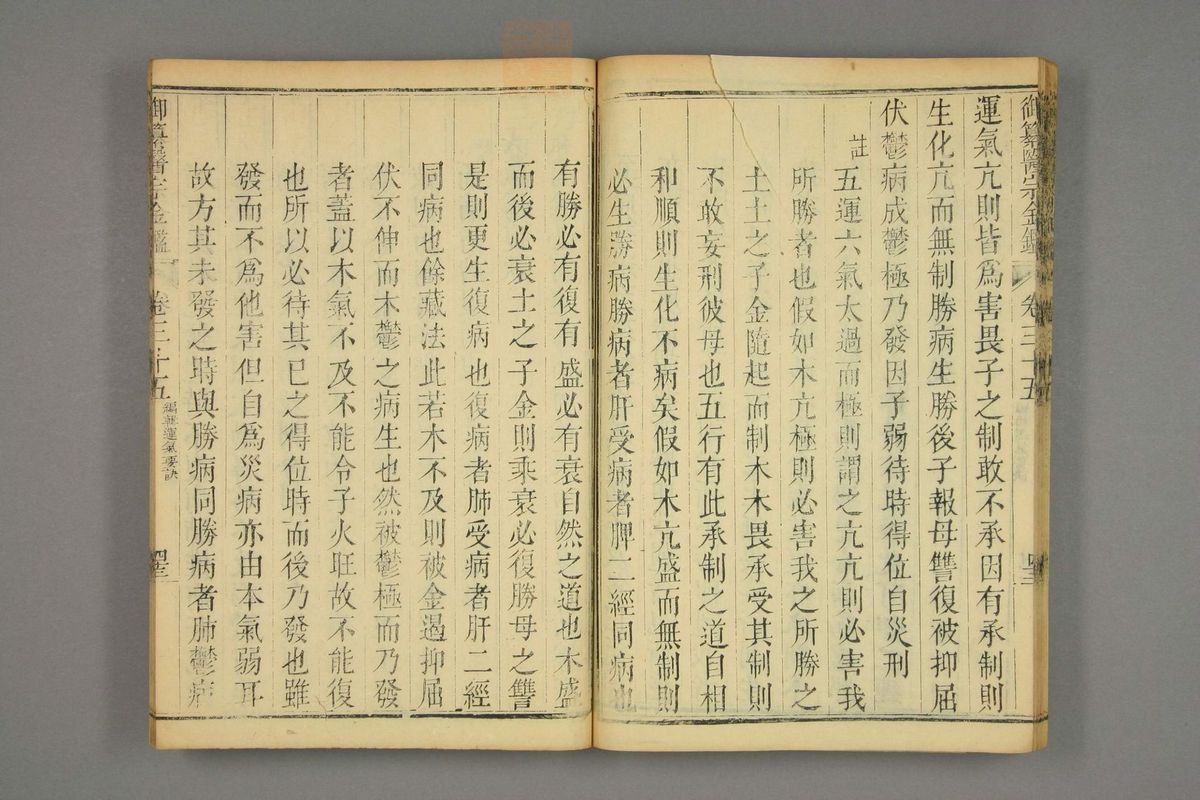 御纂醫宗金鑑 卷三十五
運氣亢則皆爲害畏子之制敢不承因有承制則
生化亢而無制勝病生勝後子報母讐復被抑屈
伏鬱病成鬱極乃發因子弱待時得位自災刑
註
五運六氣太過而極則謂之亢亢則必害我
所勝者也假如木亢極則必害我之所勝之
土土之子金隨起而制木木畏承受其制則
不敢妄刑彼母也五行有此承制之道自相
和順則生化不病矣假如木亢盛而無制則
必生勝病勝病者肝受病者脾二經同病也
有勝必有復有盛必有衰自然之道也木盛
而後必衰土之子金則乘衰必復勝母之讐
是則更生復病也復病者肺受病者肝二經
同病也餘藏法此若木不及則被金遏抑屈
伏不伸而木鬱之病生也然被鬱極而乃發
者蓋以木氣不及不能令子火旺故不能復
也所以必待其已之得位時而後乃發也雖
發而不爲他害但自爲災病亦由本氣弱耳
故方其未發之時與勝病同勝病者肺鬱病
御纂醫宗金鑑 卷三十五 編輯運氣要訣